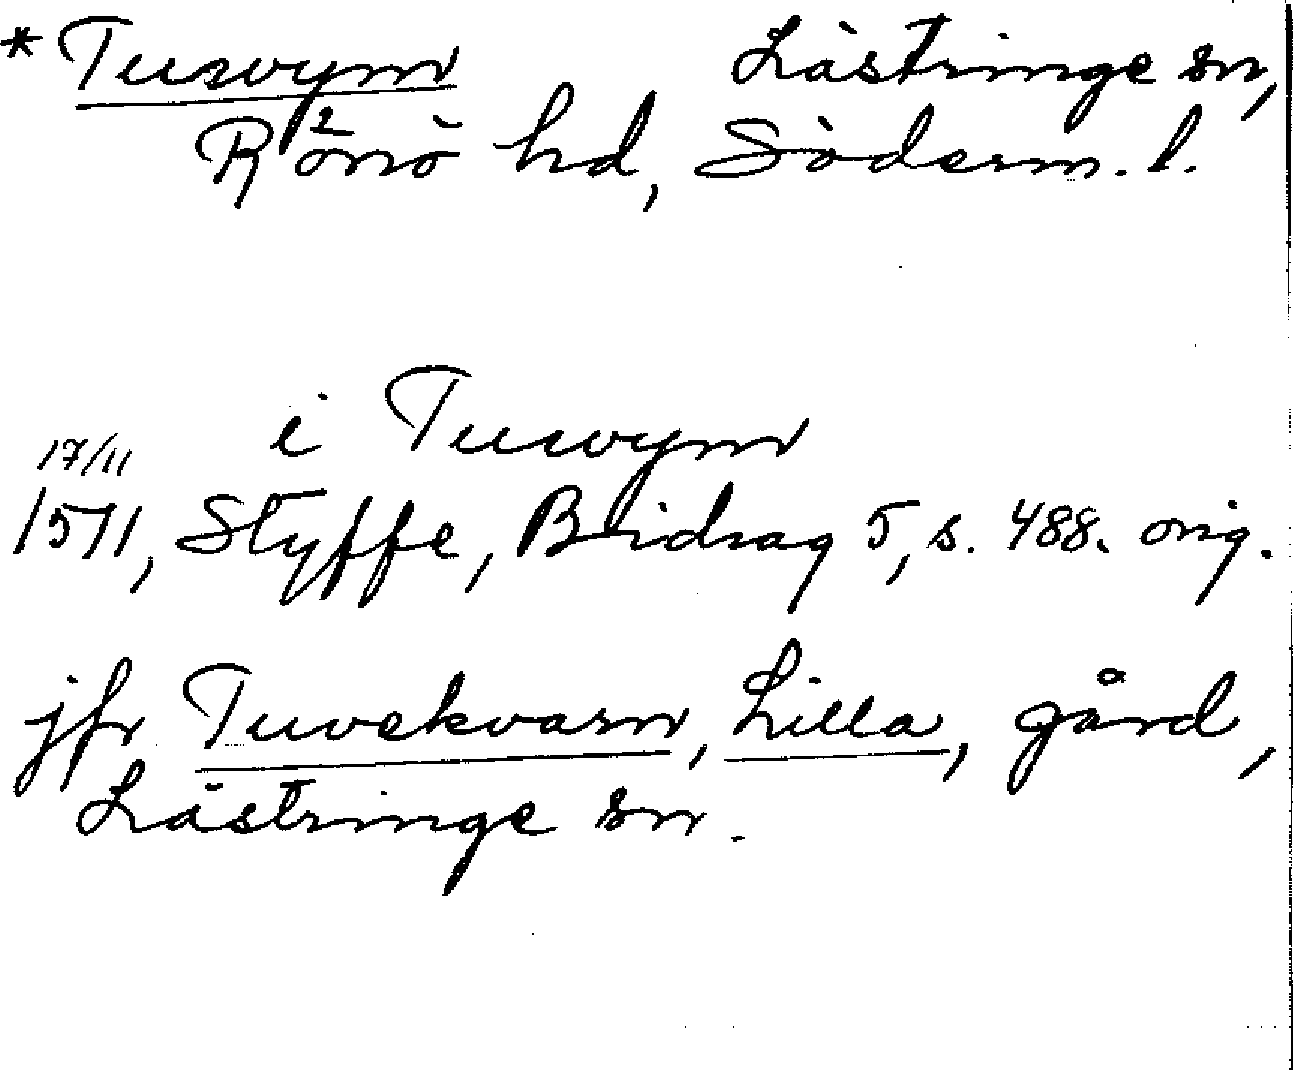 * Tuwym Lästringe sn,
Rönö hd, Söderm. l.
i Tuwym
17/11
1571, Styffe, Bidrag 5, s. 488. orig.
jfr Tuvekvarn, Lilla, gård,
Lästringe sn.